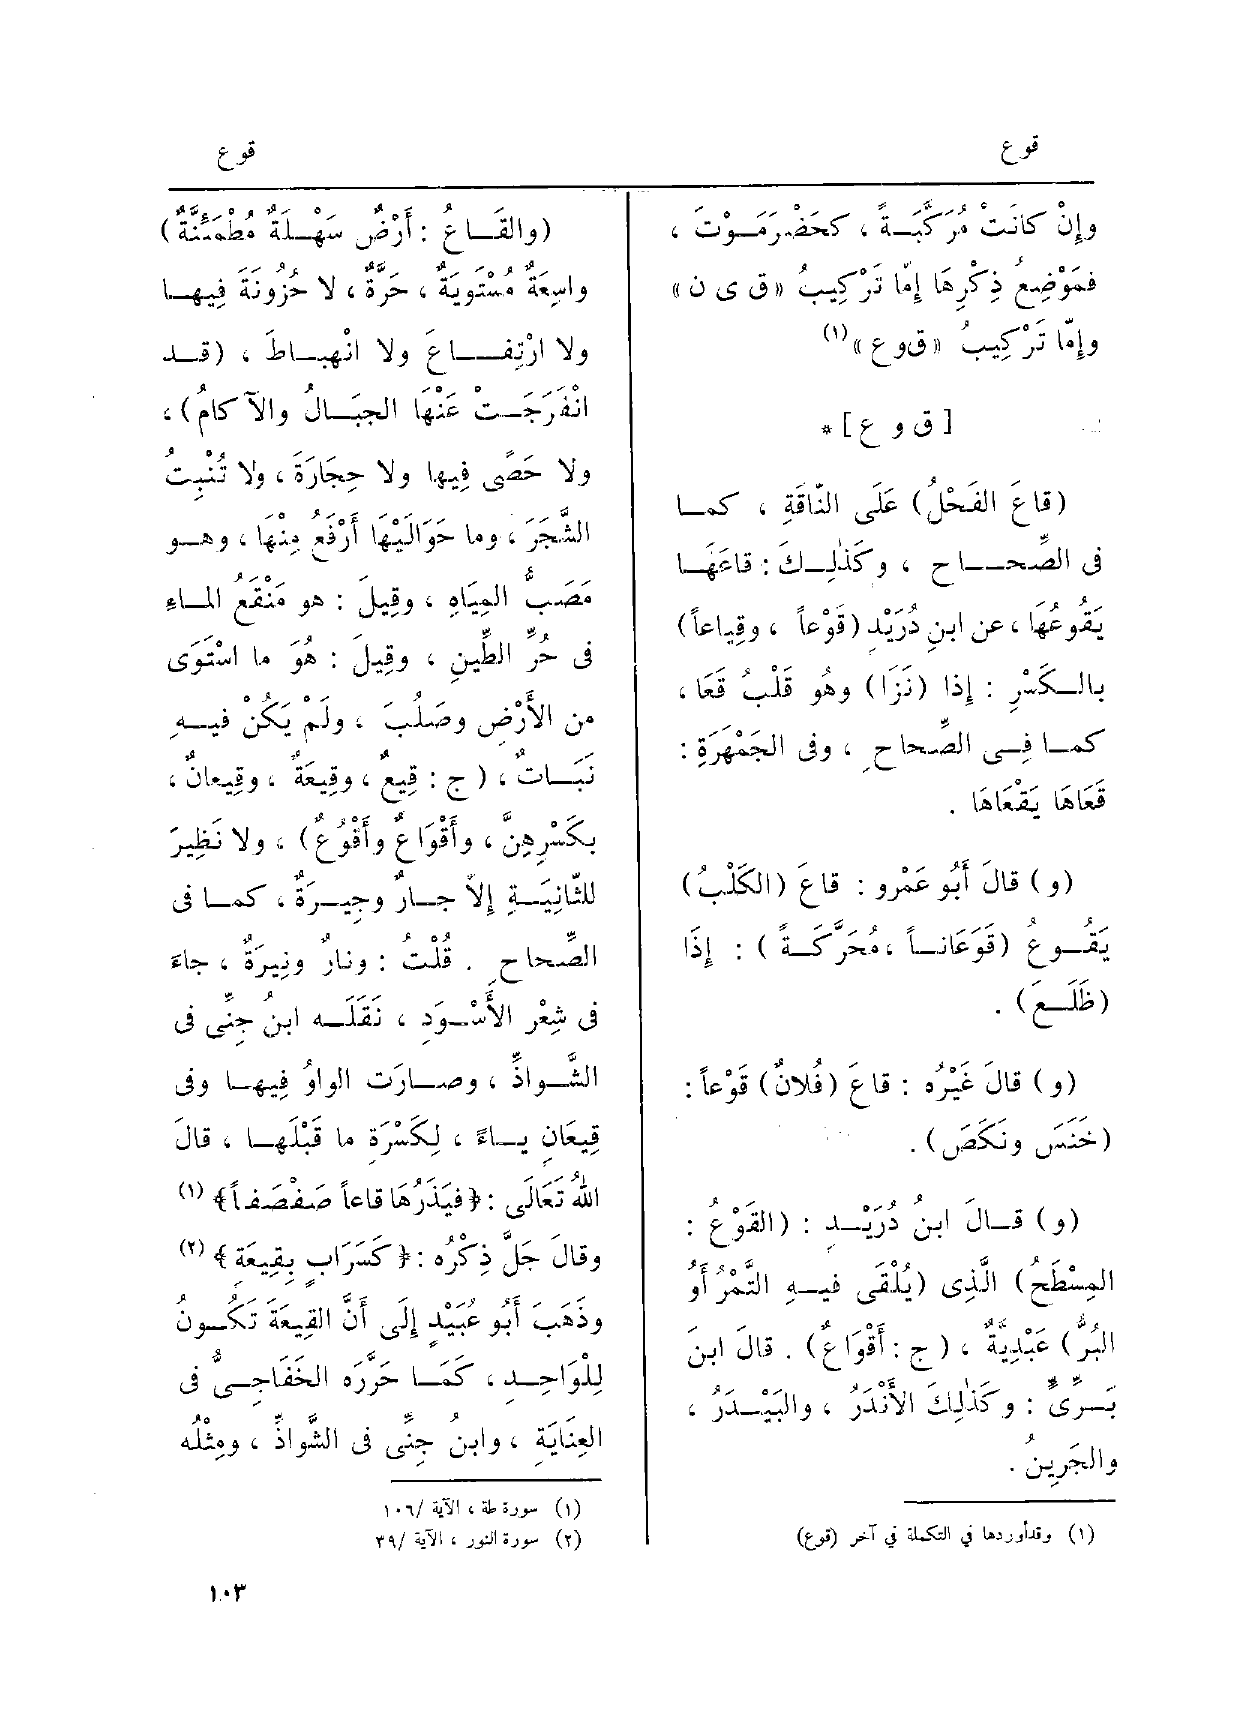 قوع
قوع
وإِنْ كانَتْ مُرَكَّبَـةً ، كحَضْرَمَـوْتَ ،
فمَوْضِعُ ذِكْرِهَا إِمّا تَرْكِيبُ «ق ى ن»
وإِمّا تَرْكِيبُ «ق و ع»(١)
[ ق و ع ] *
(قاعَ الفَحْلُ) عَلَى النّاقَةِ ، كمـا
فى الصّحـاحِ ، وكَذٰلِـكَ : قاعَهَـا
يَقُوعُهَا ، عن ابنِ دُرَيْدٍ (قَوْعاً ، وقِياعاً)
بالـكَسْرِ : إذا (نَزَا) وهُو قَلْبُ قَعَا ،
كمـا فِـى الصِّحاحِ ، وفى الجَمْهَرَةِ :
قَعَاهَا يَقْعَاهَا .
(و) قالَ أَبُو عَمْرٍو : قاعَ (الكَلْبُ)
يَقُـوعُ (قَوَعَانـاً ، مُحَرَّكَـةً ) : إِذَا
(ظَلَـعَ) .
(و) قالَ غَيْرُه : قاعَ (فُلانٌ) قَوْعاً :
(خَنَسَ ونَكَصَ) .
(و) قـالَ ابنُ دُرَيْـدٍ : (القَوْعُ :
المِسْطَحُ) الَّذِى (يُلْقَى فيـهِ التَّمْرُ أَو
البُرُّ) عَبْدِيَّةٌ ، ( ج : أَقْوَاعٌ) . قالَ ابنُ
بَـرِّىٍّ : وكَذٰلِكَ الأَنْدَرُ ، والبَيْـدَرُ ،
والجَرِينُ .
(١) وقد أوردها في التكملة في آخر (قوع)
(والقَـاعُ : أَرْضٌ سَهْـلَةٌ مُطْمَئِنَّةٌ)
واسِعَةٌ مُسْتَوِيَةٌ ، حَرَّةٌ ، لا حُزُونَةَ فِيهـا
ولا ارْتِفـاعَ ولا انْهِبـاطَ ، (قـد
انْفَرَجَـتْ عَنْهَا الجِبَـالُ والآكامُ) ،
ولا حَصًى فِيها ولا حِجَارَةَ ، ولا تُنْبِتُ
الشَّجَرَ ، وما حَوَالَيْهَا أَرْفَعُ مِنْهَا ، وهـو
مَصَبُّ المِيَاهِ ، وقِيلَ : هو مَنْقَعُ المـاءِ
فى حُرِّ الطِّينِ ، وقِيلَ : هُوَ ما اسْتَوَى
من الأَرْضِ وصَلُبَ ، ولَمْ يَكُنْ فيـهِ
نَبَـاتٌ ، ( ج : قِيعٌ ، وقِيعَةٌ ، وقِيعانٌ ،
بكَسْرِهِنَّ ، وأَقْوَاعٌ وأَقْوُعٌ) ، ولا نَظِيرَ
للثّانِيَـةِ إِلاّ جـارٌ وجِيـرَةٌ ، كمـا فى
الصِّحاحِ . قُلْتُ : ونارٌ ونِيرَةٌ ، جاءَ
فى شِعْرِ الأَسْـوَدِ ، نَقَلَـه ابنُ جِنِّى فى
الشَّـواذِّ ، وصـارَت الواوُ فِيهـا وفى
قِيعَانٍ يـاءً ، لِكَسْرَةِ ما قَبْلَهـا ، قالَ
اللهُ تَعَالَى : ﴿فيَذَرُهَا قاعاً صَفْصَفاً﴾ (١)
وقالَ جَلَّ ذِكْرُه : ﴿كَسَرَابٍ بِقِيعَةٍ﴾ (٢)
وذَهَبَ أَبُو عُبَيْدٍ إِلَى أَنَّ القِيعَةَ تَكُـونُ
لِلْوَاحِـدِ ، كَمَـا حَرَّرَه الخَفَاجِـىُّ فى
العِنَايَةِ ، وابنُ جِنِّى فى الشَّواذِّ ، ومِثْلُه
(١) سورة طه ، الآية /١٠٦
(٢) سورة النور ، الآية /٣٩
١٠٣